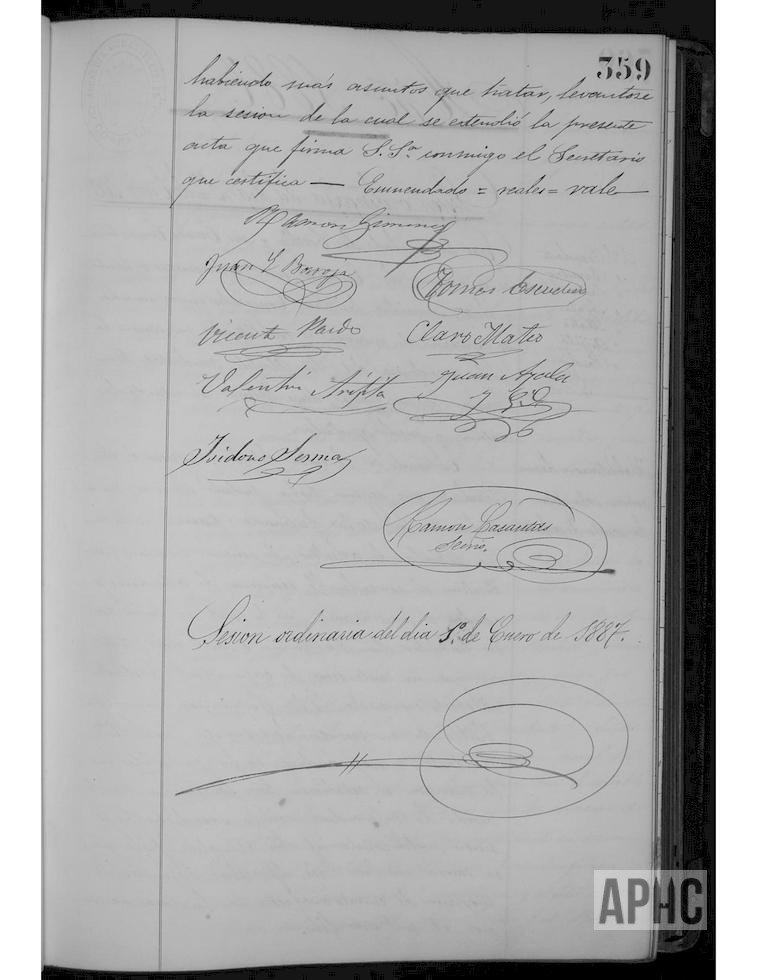 359
habiendo más asuntos que tratar, levantose
la sesion de la cual se extendió la presente
acta que firma S. Sª conmigo el Secretario
que certifica — Enmendado = reales = vale —
Ramon Gimenez
Juan L Baroja
Tomas Escudero
Vicente Pardo
Claro Mateo
Valentin
Juan Ayala
y
Isidoro Serma
Ramon Casantas
Secrio.
Sesion ordinaria del dia 1º de Enero de 1887.
APHC